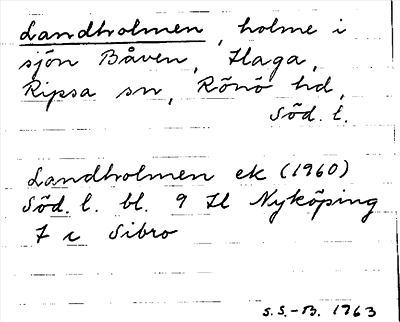 Landholmen, holme i
sjön Båven, Haga,
Ripsa sn, Rönö hd,
Söd. l.
Landholmen ek (1960)
Söd. l. bl. 9 H Nyköping
7 c Sibro
S.S.-B. 1963